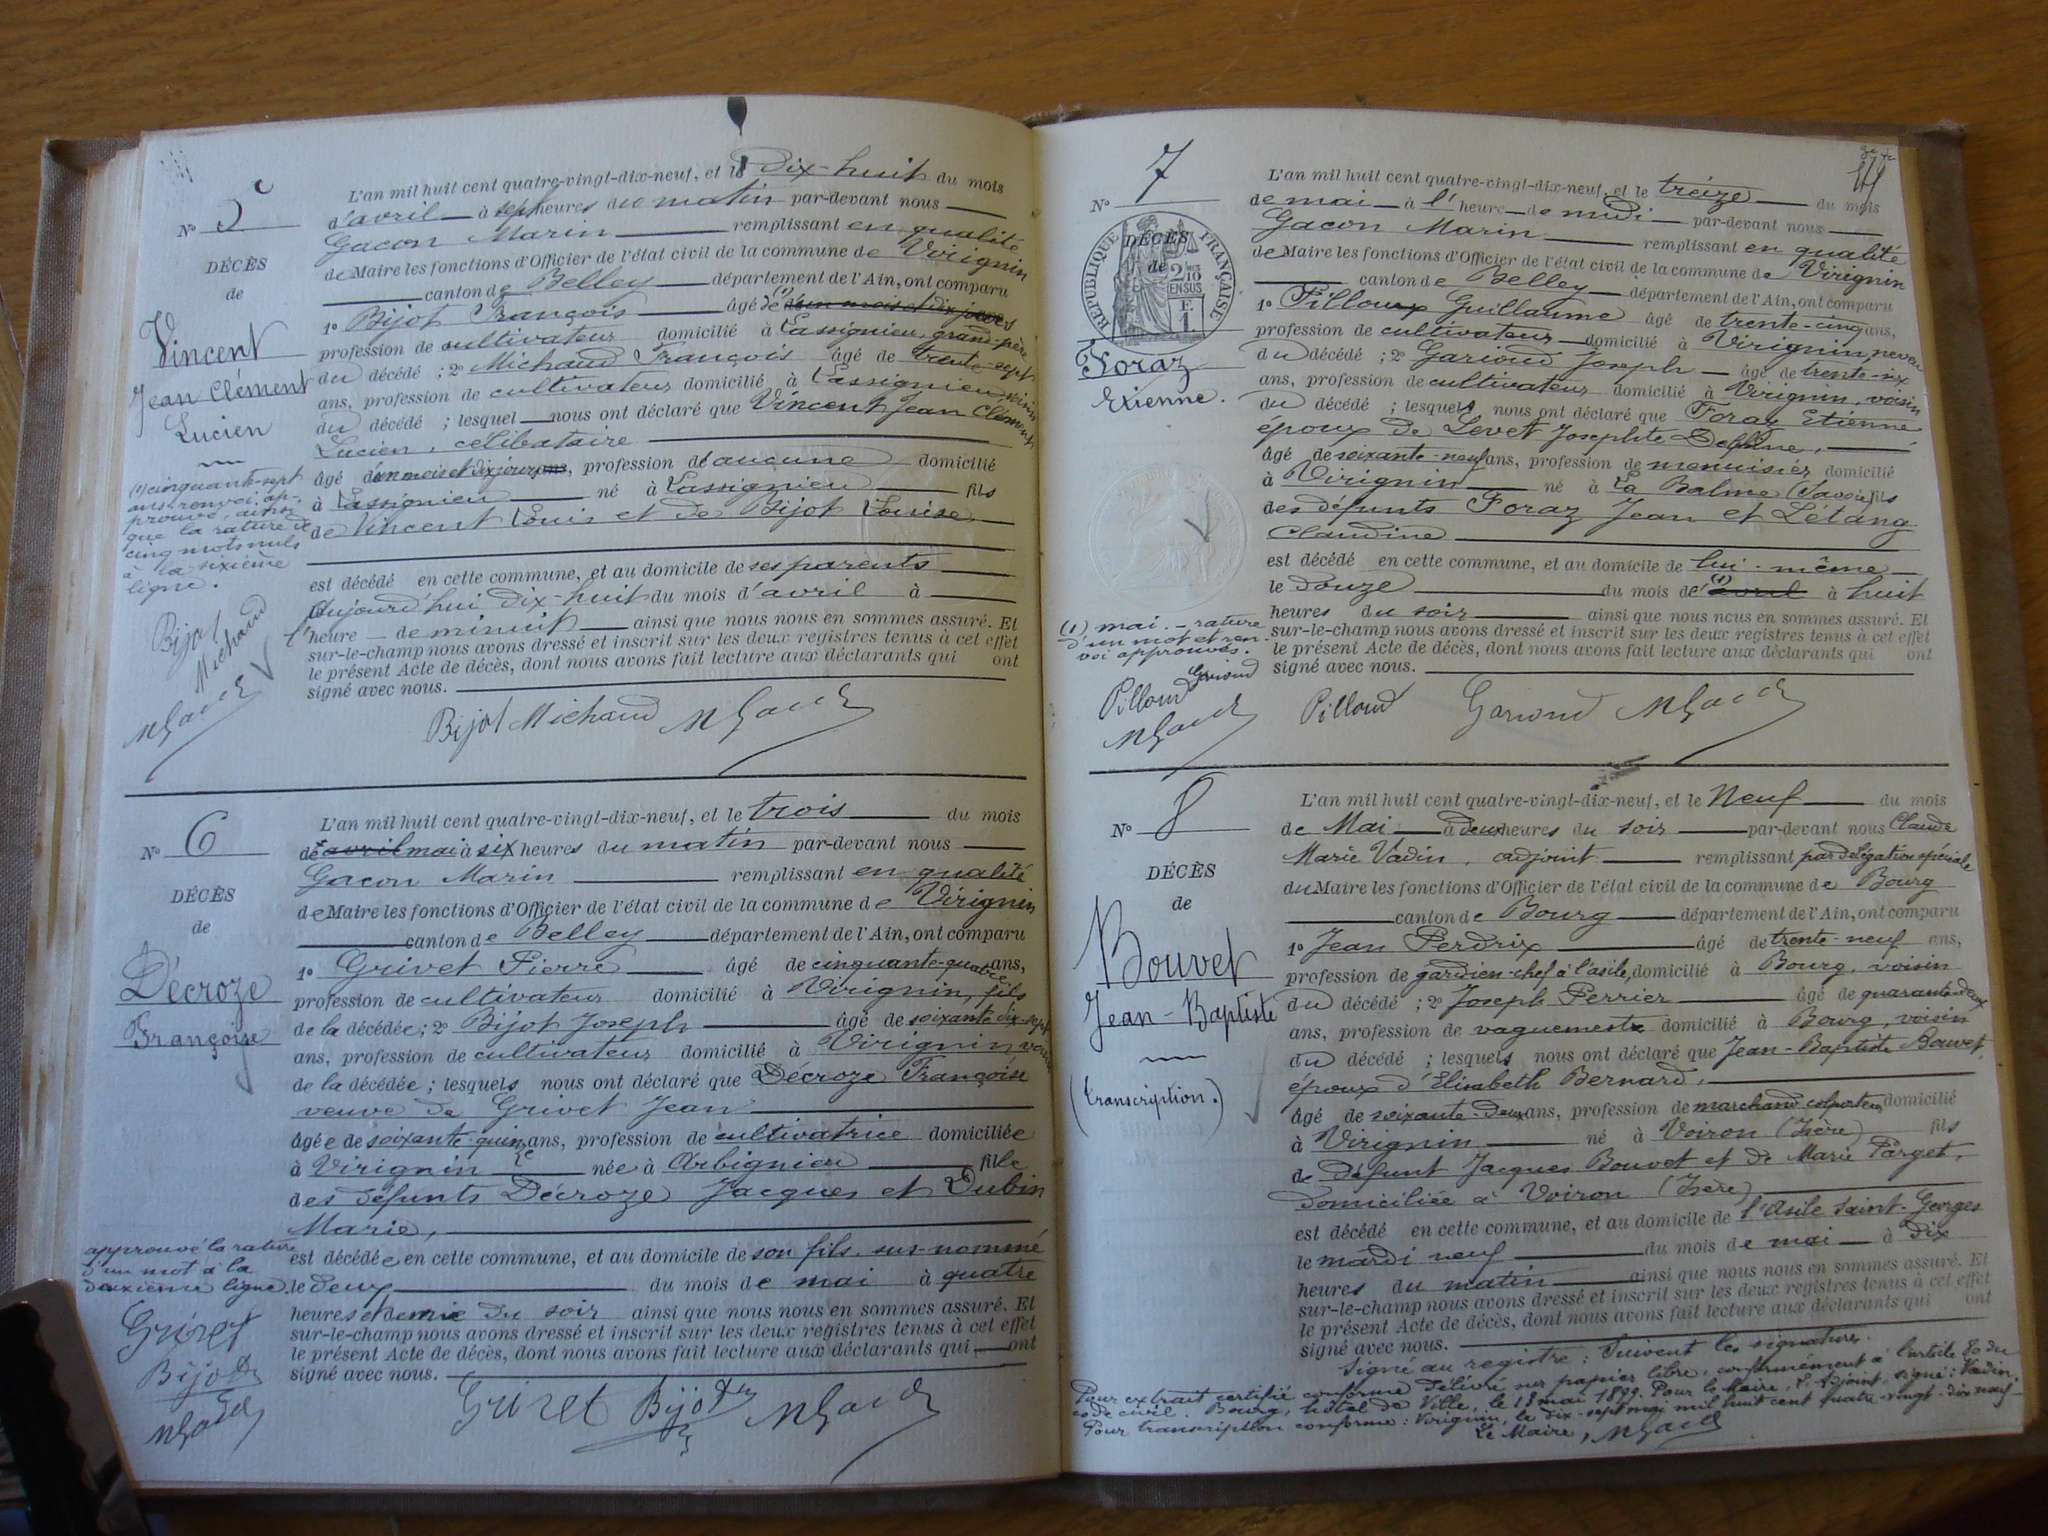 N° 5
DÉCÈS
de
Vincent
Jean Clément
Lucien
(1) cinquante-sept
ans renvoi ap-
prouvé, ainsi
que la rature de
cinq mots nuls
à la sixième
ligne.
Bijot
Michaud
MGacon
L'an mil huit cent quatre-vingt-dix-neuf, et le Dix-huit du mois
d'avril à sept heures du matin par-devant nous
Gacon Marin remplissant en qualité
de Maire les fonctions d'Officier de l'état civil de la commune de Virignin
canton de Belley département de l'Ain, ont comparu
1° Bijot François âgé de (1) d'un mois et dix jours
profession de cultivateur domicilié à Lassignieu, grand-père
du décédé ; 2° Michaud François âgé de trente-sept
ans, profession de cultivateur domicilié à Lassignieu voisin
du décédé ; lesquel nous ont déclaré que Vincent Jean Clément
Lucien, célibataire
âgé d'un mois et dix jours ans, profession d'aucune domicilié
à Lassignieu né à Lassignieu fils
de Vincent Louis et de Bijot Louise
est décédé en cette commune, et au domicile de ses parents
aujourd'hui dix-huit du mois d'avril à
1' heure de minuit ainsi que nous nous en sommes assuré. Et
sur-le-champ nous avons dressé et inscrit sur les deux registres tenus à cet effet
le présent Acte de décès, dont nous avons fait lecture aux déclarants qui ont
signé avec nous.
Bijot Michaud MGacon
N° 6
DÉCÈS
de
Décroze
Françoise
approuvé la rature
d'un mot à la
deuxième ligne.
Grivet
Bijot
MGacon
L'an mil huit cent quatre-vingt-dix-neuf, et le trois du mois
de avril mai à six heures du matin par-devant nous
Gacon Marin remplissant en qualité
de Maire les fonctions d'Officier de l'état civil de la commune de Virignin
canton de Belley département de l'Ain, ont comparu
1° Grivet Pierre âgé de cinquante-quatre ans,
profession de cultivateur domicilié à Virignin, fils
de la décédée ; 2° Bijot Joseph âgé de soixante dix-sept
ans, profession de cultivateur domicilié à Virignin voisin
de la décédée ; lesquels nous ont déclaré que Décroze Françoise
veuve de Grivet Jean
âgée de soixante-quinze ans, profession de cultivatrice domiciliée
à Virignin née à Arbignieu fille
des défunts Décroze Jacques et Dubin
Marie,
est décédée en cette commune, et au domicile de son fils sus-nommé
le deux du mois de mai à quatre
heures et demie du soir ainsi que nous nous en sommes assuré. Et
sur-le-champ nous avons dressé et inscrit sur les deux registres tenus à cet effet
le présent Acte de décès, dont nous avons fait lecture aux déclarants qui ont
signé avec nous.
Grivet Bijot MGacon
N° 7
RÉPUBLIQUE FRANÇAISE
2/10 EN SUS
F. 1.
DÉCÈS
de
Foraz
Etienne.
(1) mai. - rature
d'un mot et ren-
voi approuvés.
Pilloud Gariond
MGacon
L'an mil huit cent quatre-vingt-dix-neuf, et le treize du mois
de mai à l' heure de midi par-devant nous
Gacon Marin remplissant en qualité
de Maire les fonctions d'Officier de l'état civil de la commune de Virignin
canton de Belley département de l'Ain, ont comparu
1° Pilloux Guillaume âgé de trente-cinq ans,
profession de cultivateur domicilié à Virignin neveu
du décédé ; 2° Gariond Joseph âgé de trente-six
ans, profession de cultivateur domicilié à Virignin, voisin
du décédé ; lesquels nous ont déclaré que Foraz Etienne
époux de Levet Josephte Delphine,
âgé de soixante-neuf ans, profession de menuisier domicilié
à Virignin né à La Balme (Savoie) fils
des défunts Foraz Jean et Létang
Claudine
est décédé en cette commune, et au domicile de lui-même
le douze du mois de (1) avril à huit
heures du soir ainsi que nous nous en sommes assuré. Et
sur-le-champ nous avons dressé et inscrit sur les deux registres tenus à cet effet
le présent Acte de décès, dont nous avons fait lecture aux déclarants qui ont
signé avec nous.
Pilloud Gariond MGacon
N° 8
DÉCÈS
de
Bouvet
Jean-Baptiste
(transcription.)
L'an mil huit cent quatre-vingt-dix-neuf, et le Neuf du mois
de Mai à deux heures du soir par-devant nous Claude
Marie Vadin, adjoint remplissant par délégation spéciale
du Maire les fonctions d'Officier de l'état civil de la commune de Bourg
canton de Bourg département de l'Ain, ont comparu
1° Jean Perdrix âgé de trente-neuf ans,
profession de gardien-chef à l'asile, domicilié à Bourg, voisin
du décédé ; 2° Joseph Perrier âgé de quarante-deux
ans, profession de vaguemestre domicilié à Bourg, voisin
du décédé ; lesquels nous ont déclaré que Jean-Baptiste Bouvet,
époux d'Elisabeth Bernard,
âgé de soixante-deux ans, profession de marchand colporteur domicilié
à Virignin né à Voiron (Isère) fils
de défunt Jacques Bouvet et de Marie Parget,
domiciliée à Voiron (Isère)
est décédé en cette commune, et au domicile de l'Asile Saint-Georges
le mardi neuf du mois de mai à dix
heures du matin ainsi que nous nous en sommes assuré. Et
sur-le-champ nous avons dressé et inscrit sur les deux registres tenus à cet effet
le présent Acte de décès, dont nous avons fait lecture aux déclarants qui ont
signé avec nous.
Signé au registre : Suivent les signatures.
Pour extrait certifié conforme délivré sur papier libre, conformément à l'article 80 du
code civil. Bourg, hôtel de Ville, le 13 mai 1899. Pour le Maire, l'Adjoint, signé : Vadin.
Pour transcription conforme : Virignin, le dix-sept mai mil huit cent quatre-vingt-dix-neuf
Le Maire, MGacon